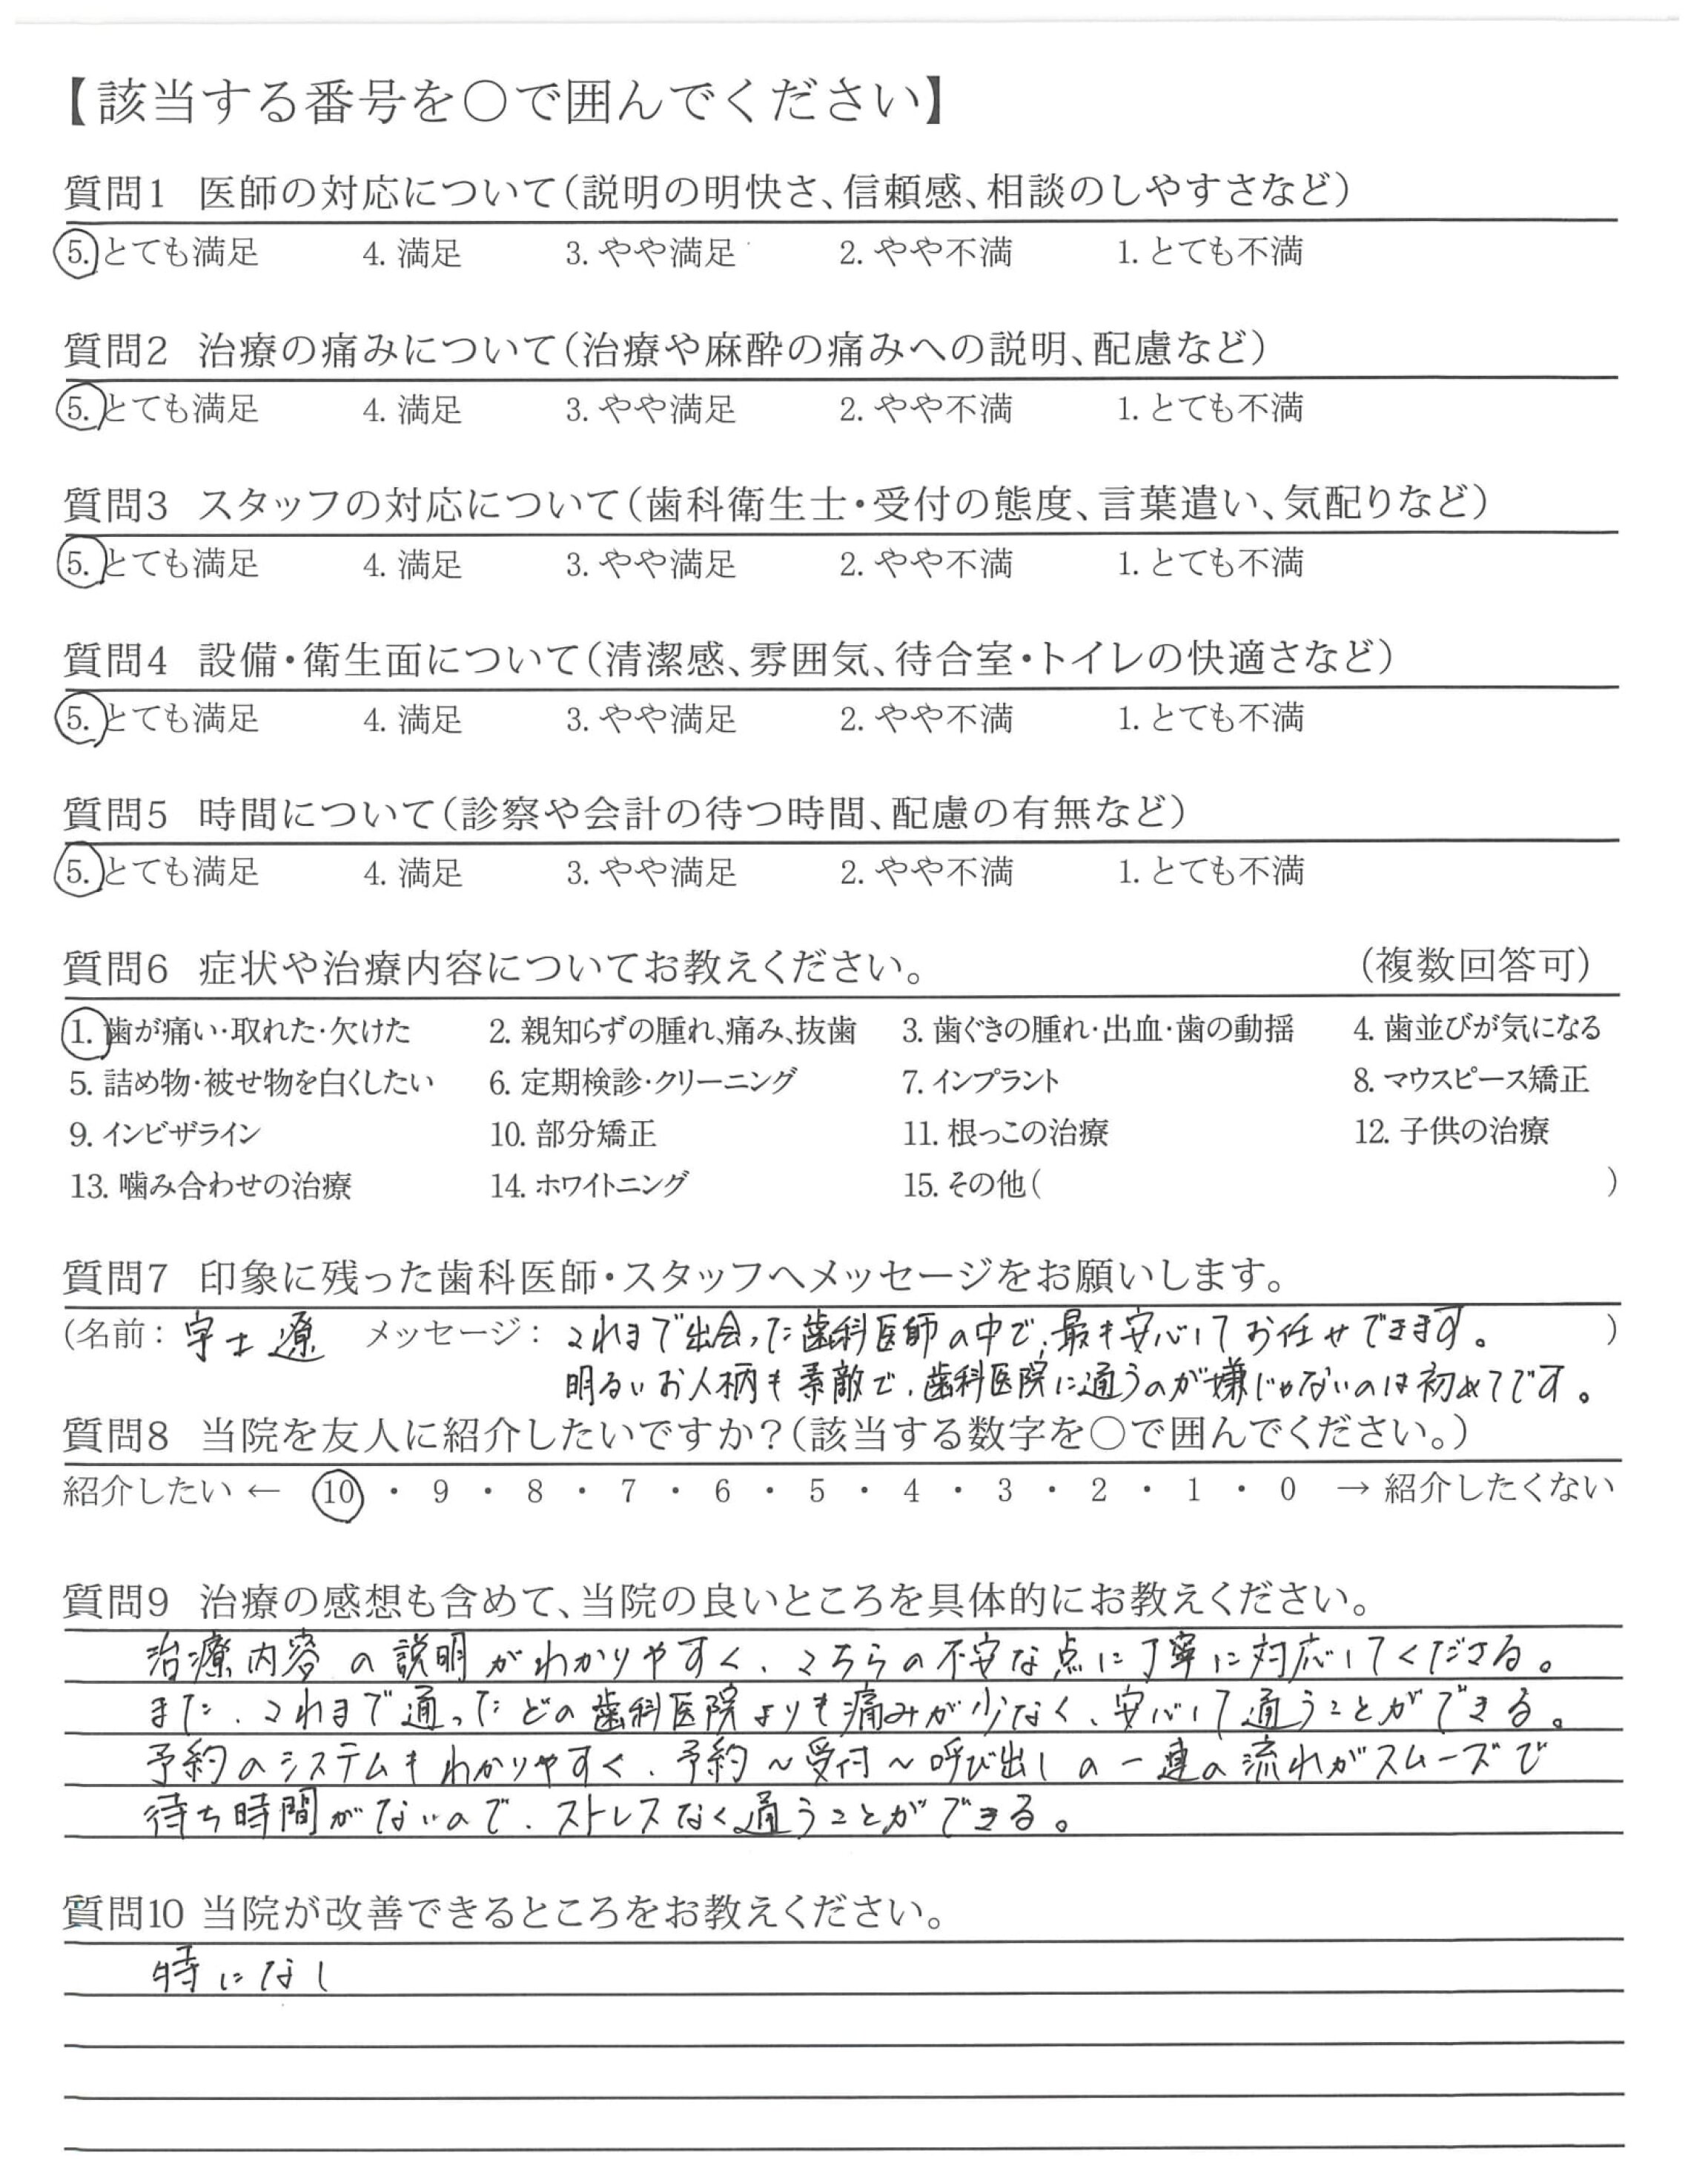 【該当する番号を〇で囲んでください】
質問1 医師の対応について（説明の明快さ、信頼感、相談のしやすさなど）
5. とても満足 4. 満足 3. やや満足 2. やや不満 1. とても不満
質問2 治療の痛みについて（治療や麻酔の痛みへの説明、配慮など）
5. とても満足 4. 満足 3. やや満足 2. やや不満 1. とても不満
質問3 スタッフの対応について（歯科衛生士・受付の態度、言葉遣い、気配りなど）
5. とても満足 4. 満足 3. やや満足 2. やや不満 1. とても不満
質問4 設備・衛生面について（清潔感、雰囲気、待合室・トイレの快適さなど）
5. とても満足 4. 満足 3. やや満足 2. やや不満 1. とても不満
質問5 時間について（診察や会計の待つ時間、配慮の有無など）
5. とても満足 4. 満足 3. やや満足 2. やや不満 1. とても不満
質問6 症状や治療内容についてお教えください。 （複数回答可）
1. 歯が痛い・取れた・欠けた 2. 親知らずの腫れ、痛み、抜歯 3. 歯ぐきの腫れ・出血・歯の動揺 4. 歯並びが気になる
5. 詰め物・被せ物を白くしたい 6. 定期検診・クリーニング 7. インプラント 8. マウスピース矯正
9. インビザライン 10. 部分矯正 11. 根っこの治療 12. 子供の治療
13. 噛み合わせの治療 14. ホワイトニング 15. その他（ ）
質問7 印象に残った歯科医師・スタッフへメッセージをお願いします。
（名前： メッセージ： これまで出会った歯科医師の中で、最も安心してお任せできます。 ）
明るいお人柄も素敵で、歯科医院に通うのが嫌じゃないのは初めてです。
質問8 当院を友人に紹介したいですか？（該当する数字を〇で囲んでください。）
紹介したい ← 10 ・ 9 ・ 8 ・ 7 ・ 6 ・ 5 ・ 4 ・ 3 ・ 2 ・ 1 ・ 0 → 紹介したくない
質問9 治療の感想も含めて、当院の良いところを具体的にお教えください。
治療内容の説明がわかりやすく、こちらの不安な点に丁寧に対応してくださる。
また、これまで通ったどの歯科医院よりも痛みが少なく、安心して通うことができる。
予約のシステムもわかりやすく、予約〜受付〜呼び出しの一連の流れがスムーズで
待ち時間がないので、ストレスなく通うことができる。
質問10 当院が改善できるところをお教えください。
特になし